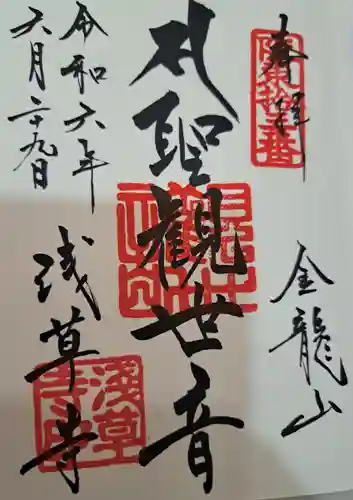 奉拝
金龍山
聖觀世音
浅草寺
令和六年
六月二十九日
坂東拾三番
淺草寺印